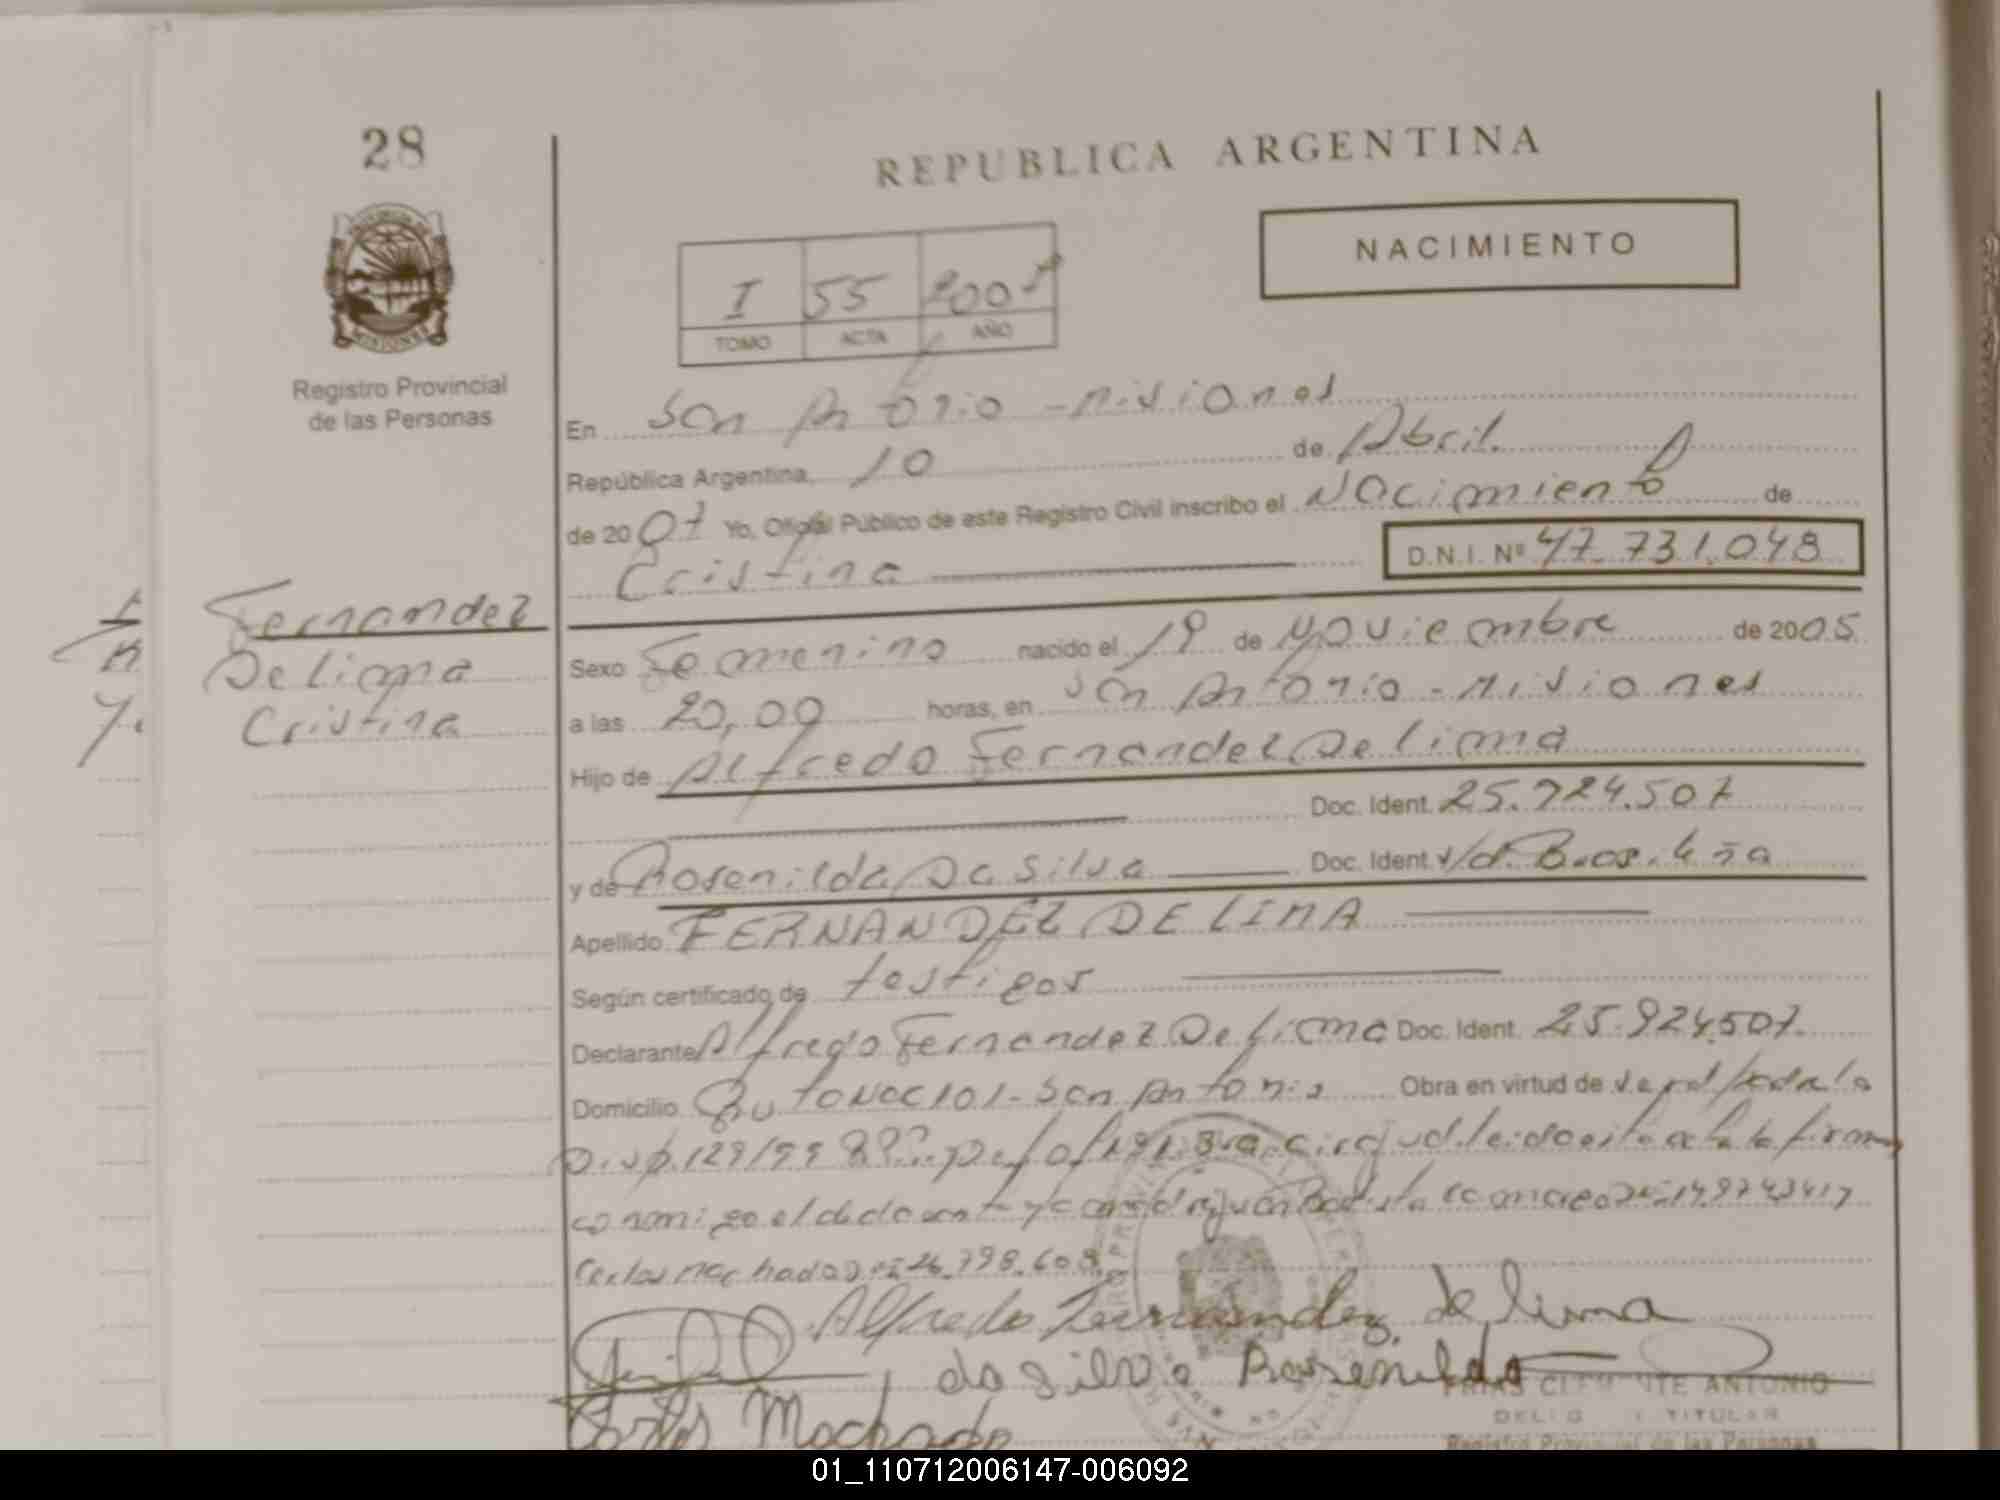 28
REPUBLICA ARGENTINA
NACIMIENTO
I 55 200
TOMO ACTA AÑO
Registro Provincial
de las Personas
En San Antonio - Misiones
República Argentina, 10 de Abril
de 2007 Yo, Oficial Público de este Registro Civil inscribo el Nacimiento de
Cristina D.N.I. Nº 47.731.048
Fernandez
De lima
Cristina
Sexo Femenino nacido el 19 de Noviembre de 2005
a las 20,00 horas, en San Antonio - Misiones
Hijo de Alfredo Fernandez De lima
Doc. Ident. 25.924.507
y de Rosenilda Da Silva Doc. Ident.
Apellido FERNANDEZ DE LIMA
Según certificado de testigos
Declarante Alfredo Fernandez De lima Doc. Ident. 25.924.507
Domicilio San Antonio Obra en virtud de
129/99
conmigo el
Carlos Machado 26.798.608
Alfredo Fernandez de lima
da silva Rosenilda
FRIAS CLEMENTE ANTONIO
TITULAR
Carlos Machado
Registro Provincial de las Personas
01_110712006147-006092